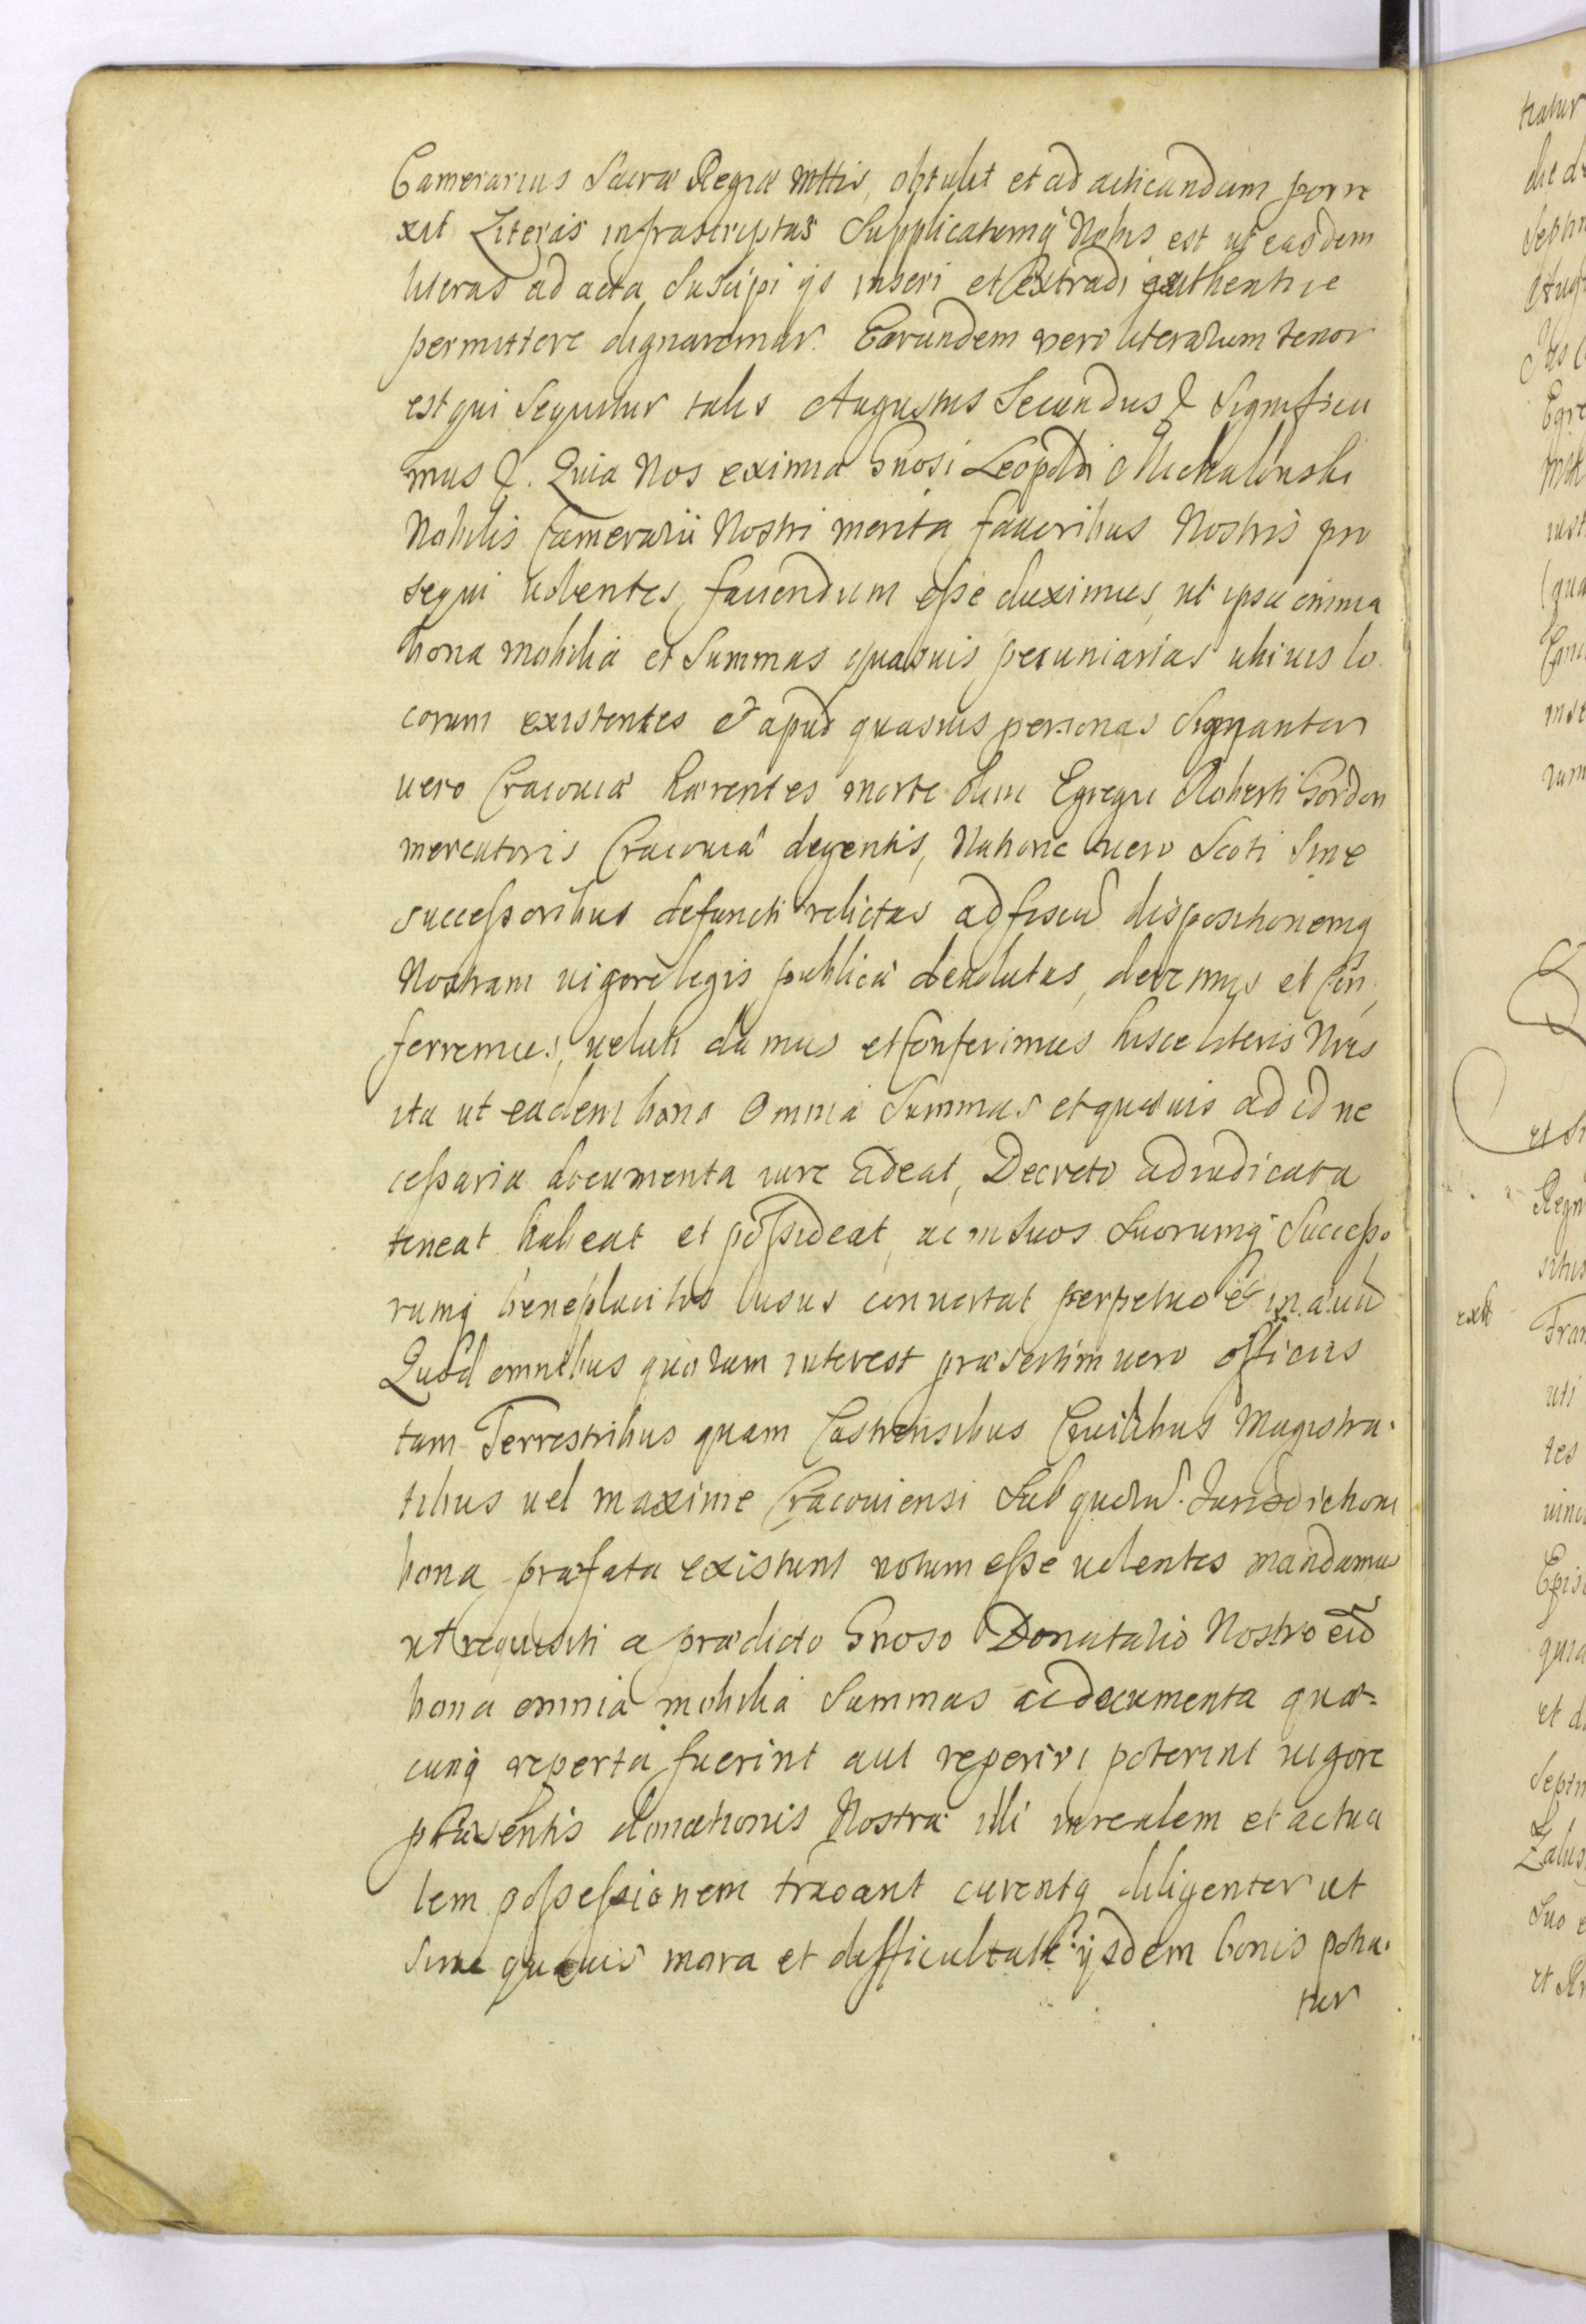 Camerarius Sacræ Regiæ Mttis, obtulit et ad acticandum porre
xit Literas infrascriptas Supplicatumq Nobis est ut easdem
literas ad acta Suscipi ijs inseri et extradi authentice
permittere dignaremur. Earundem vero literarum tenor
est qui Sequitur talis Augustus Secundus & Significa
mus &. Quia Nos eximia Gnosi Leopoldi Michalonski
Nobilis Camerarii Nostri merita fauoribus Nostris pro
sequi uolentes, fauendum esse duximus, ut ipsi omnia
bona mobilia et Summas quasuis pecuniarias ubiuis lo
corum existentes et apud quasuis personas Signanter
uero Cracouiæ hærentes morte olim Egregii Roberti Gordon
mercatoris Cracouiæ degentis, Natione uero Scoti Sine
successoribus defuncti relictas ad fiscū dispositionemq
Nostram uigore legis publicæ deuolutas, daremus et Con
ferremus, ueluti damus et Conferimus hisce literis Nris
ita ut eadem bona Omnia Summas et quæuis ad id ne
cessaria documenta iure adeat, Decreto adiudicata
teneat habeat et possideat, ac in Suos Suorumq Successo
rumq beneplacitos usus conuertat perpetuo et in æuū
Quod omnibus quorum interest præsertim uero officiis
tam Terrestribus quam Castrensibus Ciuilibus Magistra
tibus uel maxime Cracouiensi Sub quorū Iurisdictione
bona præfata existunt notum esse uolentes mandamus
ut requisiti a prædicto Gnoso Donatario Nostro eid
bona omnia mobilia Summas ac documenta quæ-
cunq reperta fuerint aut reperiri poterint uigore
præsentis donationis Nostræ illi in realem et actua
lem possessionem tradant curentq diligenter ut
Sine quauis mora et difficultate ijsdem bonis potia
tur